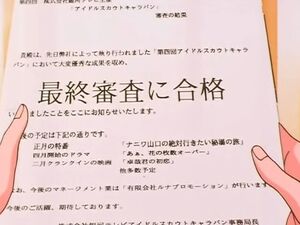 第四回 株式会社銀河テレビ主催
「アイドルスカウトキャラバン」
審査の結果
貴殿は、先日弊社によって執り行われました「第四回アイドルスカウトキャラ
バン」において大変優秀な成果を収め、
最終審査に合格
いましたことをここにお知らせいたします。
後の予定は下記の通りです。
正月の特番 「ナニワ山口の絶対行きたい秘湯の旅」
四月開始のドラマ 「あぁ、花の枚数オーバー」
二月クランクインの映画 「卓哉君の初恋」
他多数予定
お、今後のマネージメント業は「有限会社ルナプロモーション」が行います
今後のご活躍、期待しております。
テレビアイドルスカウトキャラバン事務局長